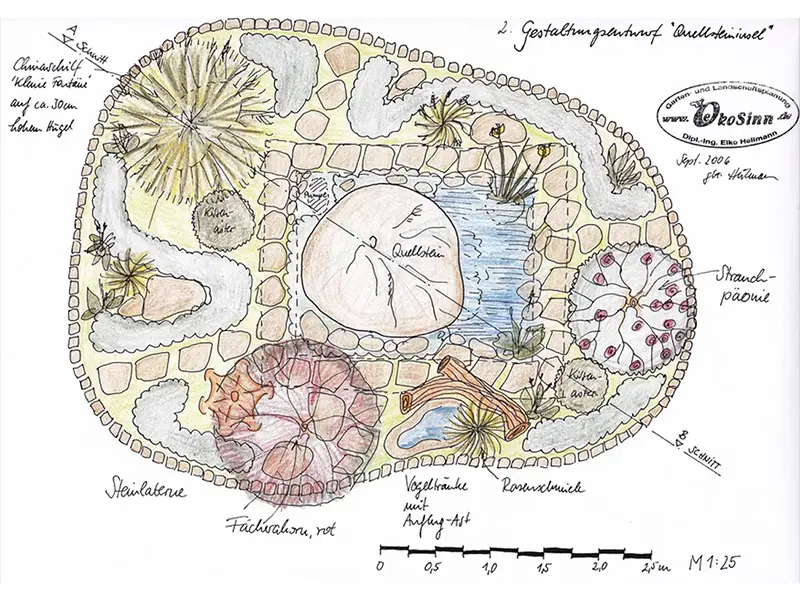 2. Gestaltungsentwurf "Quellsteininsel"
A
Schnitt
Chinaschilf
'Kleine Fontäne'
auf ca. 30cm
hohem Hügel
Garten- und Landschaftsplanung
www.ÖkoSinn.de
Dipl.-Ing. Elko Hellmann
Sept. 2006
gez. Hellmann
Pumpe
Kissen-
aster
Quellstein
Strauch-
päonie
Kissen-
aster
B
SCHNITT
Steinlaterne
Fächerahorn, rot
Vogeltränke
mit
Anflug-Ast
Rasenschmiele
0 0,5 1,0 1,5 2,0 2,5m
M 1:25